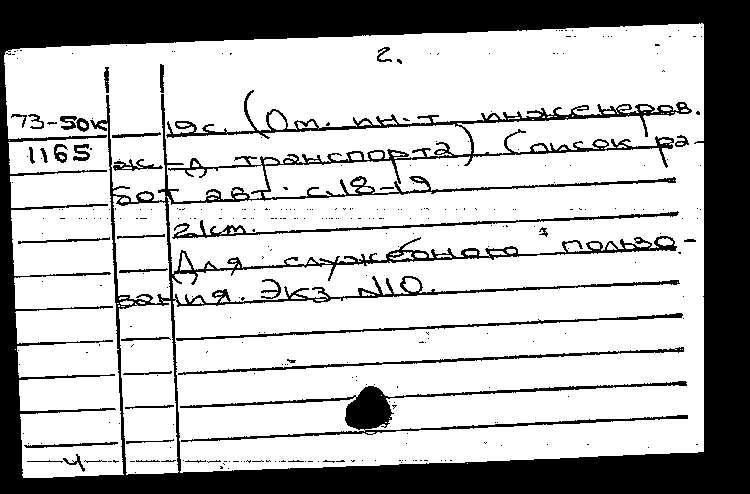 2.
73-50к 19с. (Ом. ин-т инженеров
1165 ж.-д. транспорта). Список ра-
бот авт. с.18-19
21см.
Для служебного пользо-
вания. Экз N10.
4